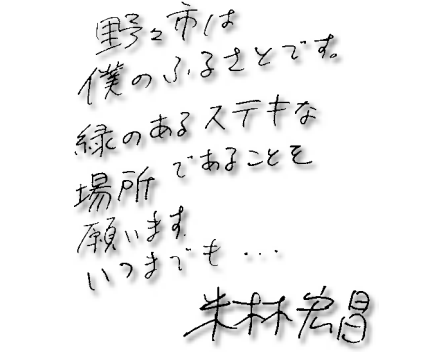 野々市は
僕のふるさとです。
緑のあるステキな
場所であることを
願います.
いつまでも...
米林宏昌